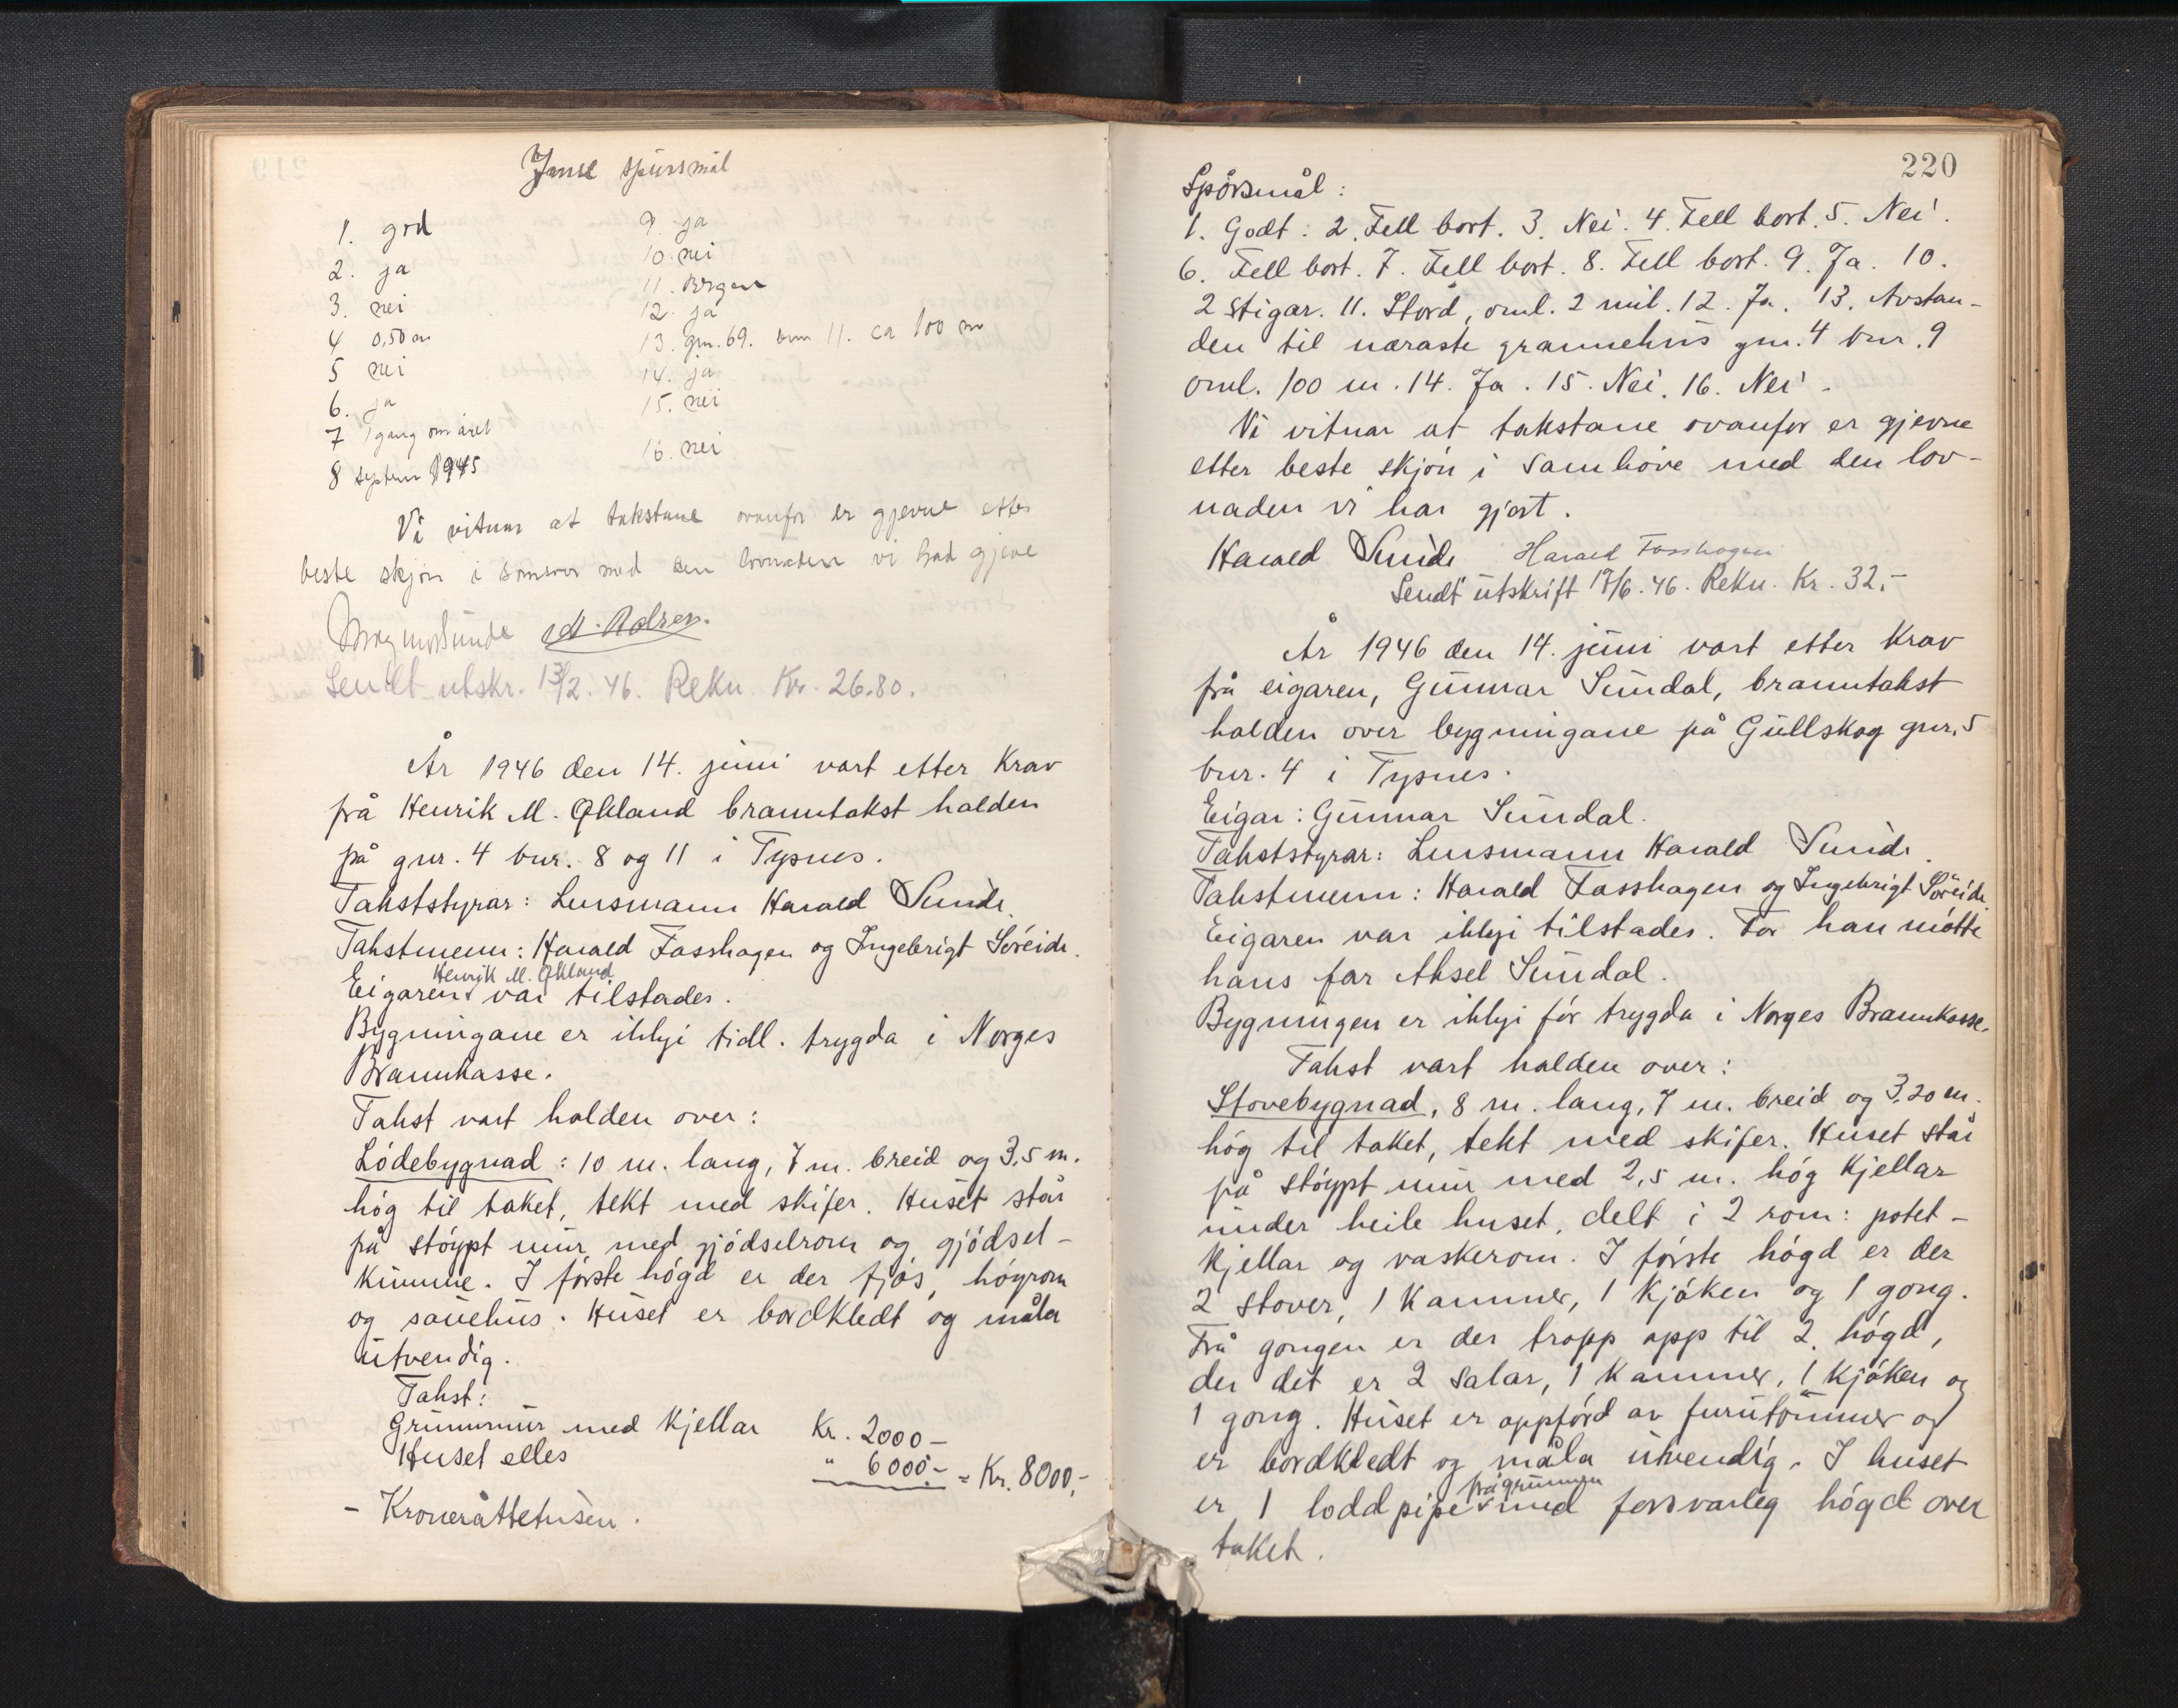 Ymse spursmål
1. god
2. ja
3. nei
4 0,50 m
5 nei
6. ja
7 1 gang om året
8 septem 1945
9. ja
10. nei
11. Bergen
12. ja
13. gnr. 69. bnr 11. ca 100 m
14. ja
15. nei
16. nei
Vi vitnar at takstane ovanfor er gjevne etter
beste skjøn i samsvar med den lovnaden vi had gjeve
Magnus Sunde
Sendt utskr. 13/2. 46. Rekn. Kr. 26.80.
År 1946 den 14. juni vart etter krav
frå Henrik M. Økland branntakst halden
på gnr. 4 bnr. 8 og 11 i Tysnes.
Takststyrar: Lensmann Harald Sunde.
Takstmenn: Harald Fasshagen og Ingebrigt Søreide.
Henrik M. Økland
Eigaren var tilstades.
Bygningane er ikkji tidl. trygda i Norges
Brannkasse.
Takst vart halden over:
Lødebygnad: 10 m. lang, 7 m. breid og 3,5 m.
høg til taket, tekt med skifer. Huset står
på støypt mur, med gjødselrom og gjødsel-
kumme. I første høgd er der fjøs, høyrom
og sauehus. Huset er bordkledt og måla
utvendig.
Takst:
Grunnmur med kjellar Kr. 2000 -
Huset elles " 6000.- = Kr. 8000,-
- Kroneråttetusen.
220
Spørsmål:
1. Godt: 2. Fell bort. 3. Nei. 4. Fell bort. 5. Nei.
6. Fell bort. 7. Fell bort. 8. Fell bort. 9. Ja. 10.
2 stigar. 11. Stord, oml. 2 mil. 12. Ja. 13. Avstan-
den til næraste grannehus gnr. 4 bnr. 9
oml. 100 m. 14. Ja. 15. Nei. 16. Nei.
Vi vitnar at takstane ovanfor er gjevne
etter beste skjøn i samhøve med den lov-
naden vi har gjort.
Harald Sunde Harald Fasshagen
Sendt utskrift 17/6. 46. Rekn. Kr. 32.-
År 1946 den 14. juni vart etter krav
frå eigaren, Gunnar Sundal, branntakst
halden over bygningane på Gullskog gnr. 5
bnr. 4 i Tysnes.
Eigar: Gunnar Sundal.
Takststyrar: Lensmann Harald Sunde.
Takstmenn: Harald Fasshagen og Ingebrigt Søreide.
Eigaren var ikkji tilstades. For han møtte
hans far Aksel Sundal.
Bygningen er ikkji før trygda i Norges Brannkasse.
Takst vart halden over:
Stovebygnad, 8 m. lang, 7 m. breid og 3,20 m.
høg til taket, tekt med skifer. Huset står
på støypt mur med 2,5 m. høg kjellar
under heile huset, delt i 2 rom: potet-
kjellar og vaskerom. I første høgd er der
2 stover, 1 kammer, 1 kjøken og 1 gong.
Frå gongen er der tropp opp til 2. høgd,
der det er 2 salar, 1 kammer, 1 kjøken og
1 gong. Huset er oppførd av furutømmer og
er bordkledt og måla utvendig. I huset
frå grunnen
er 1 loddpipe med forsvarleg høgd over
taket.